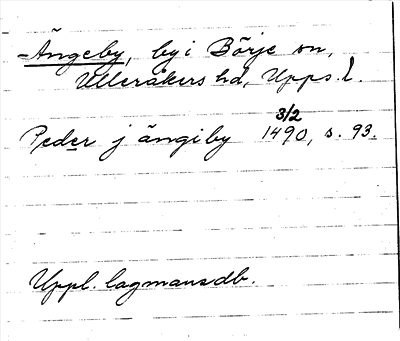 -Ängeby, by i Börje sn,
Ulleråkers hd, Upps. l.
3/2
Peder j ängiby 1490, s. 93.
Uppl. lagmansdb.